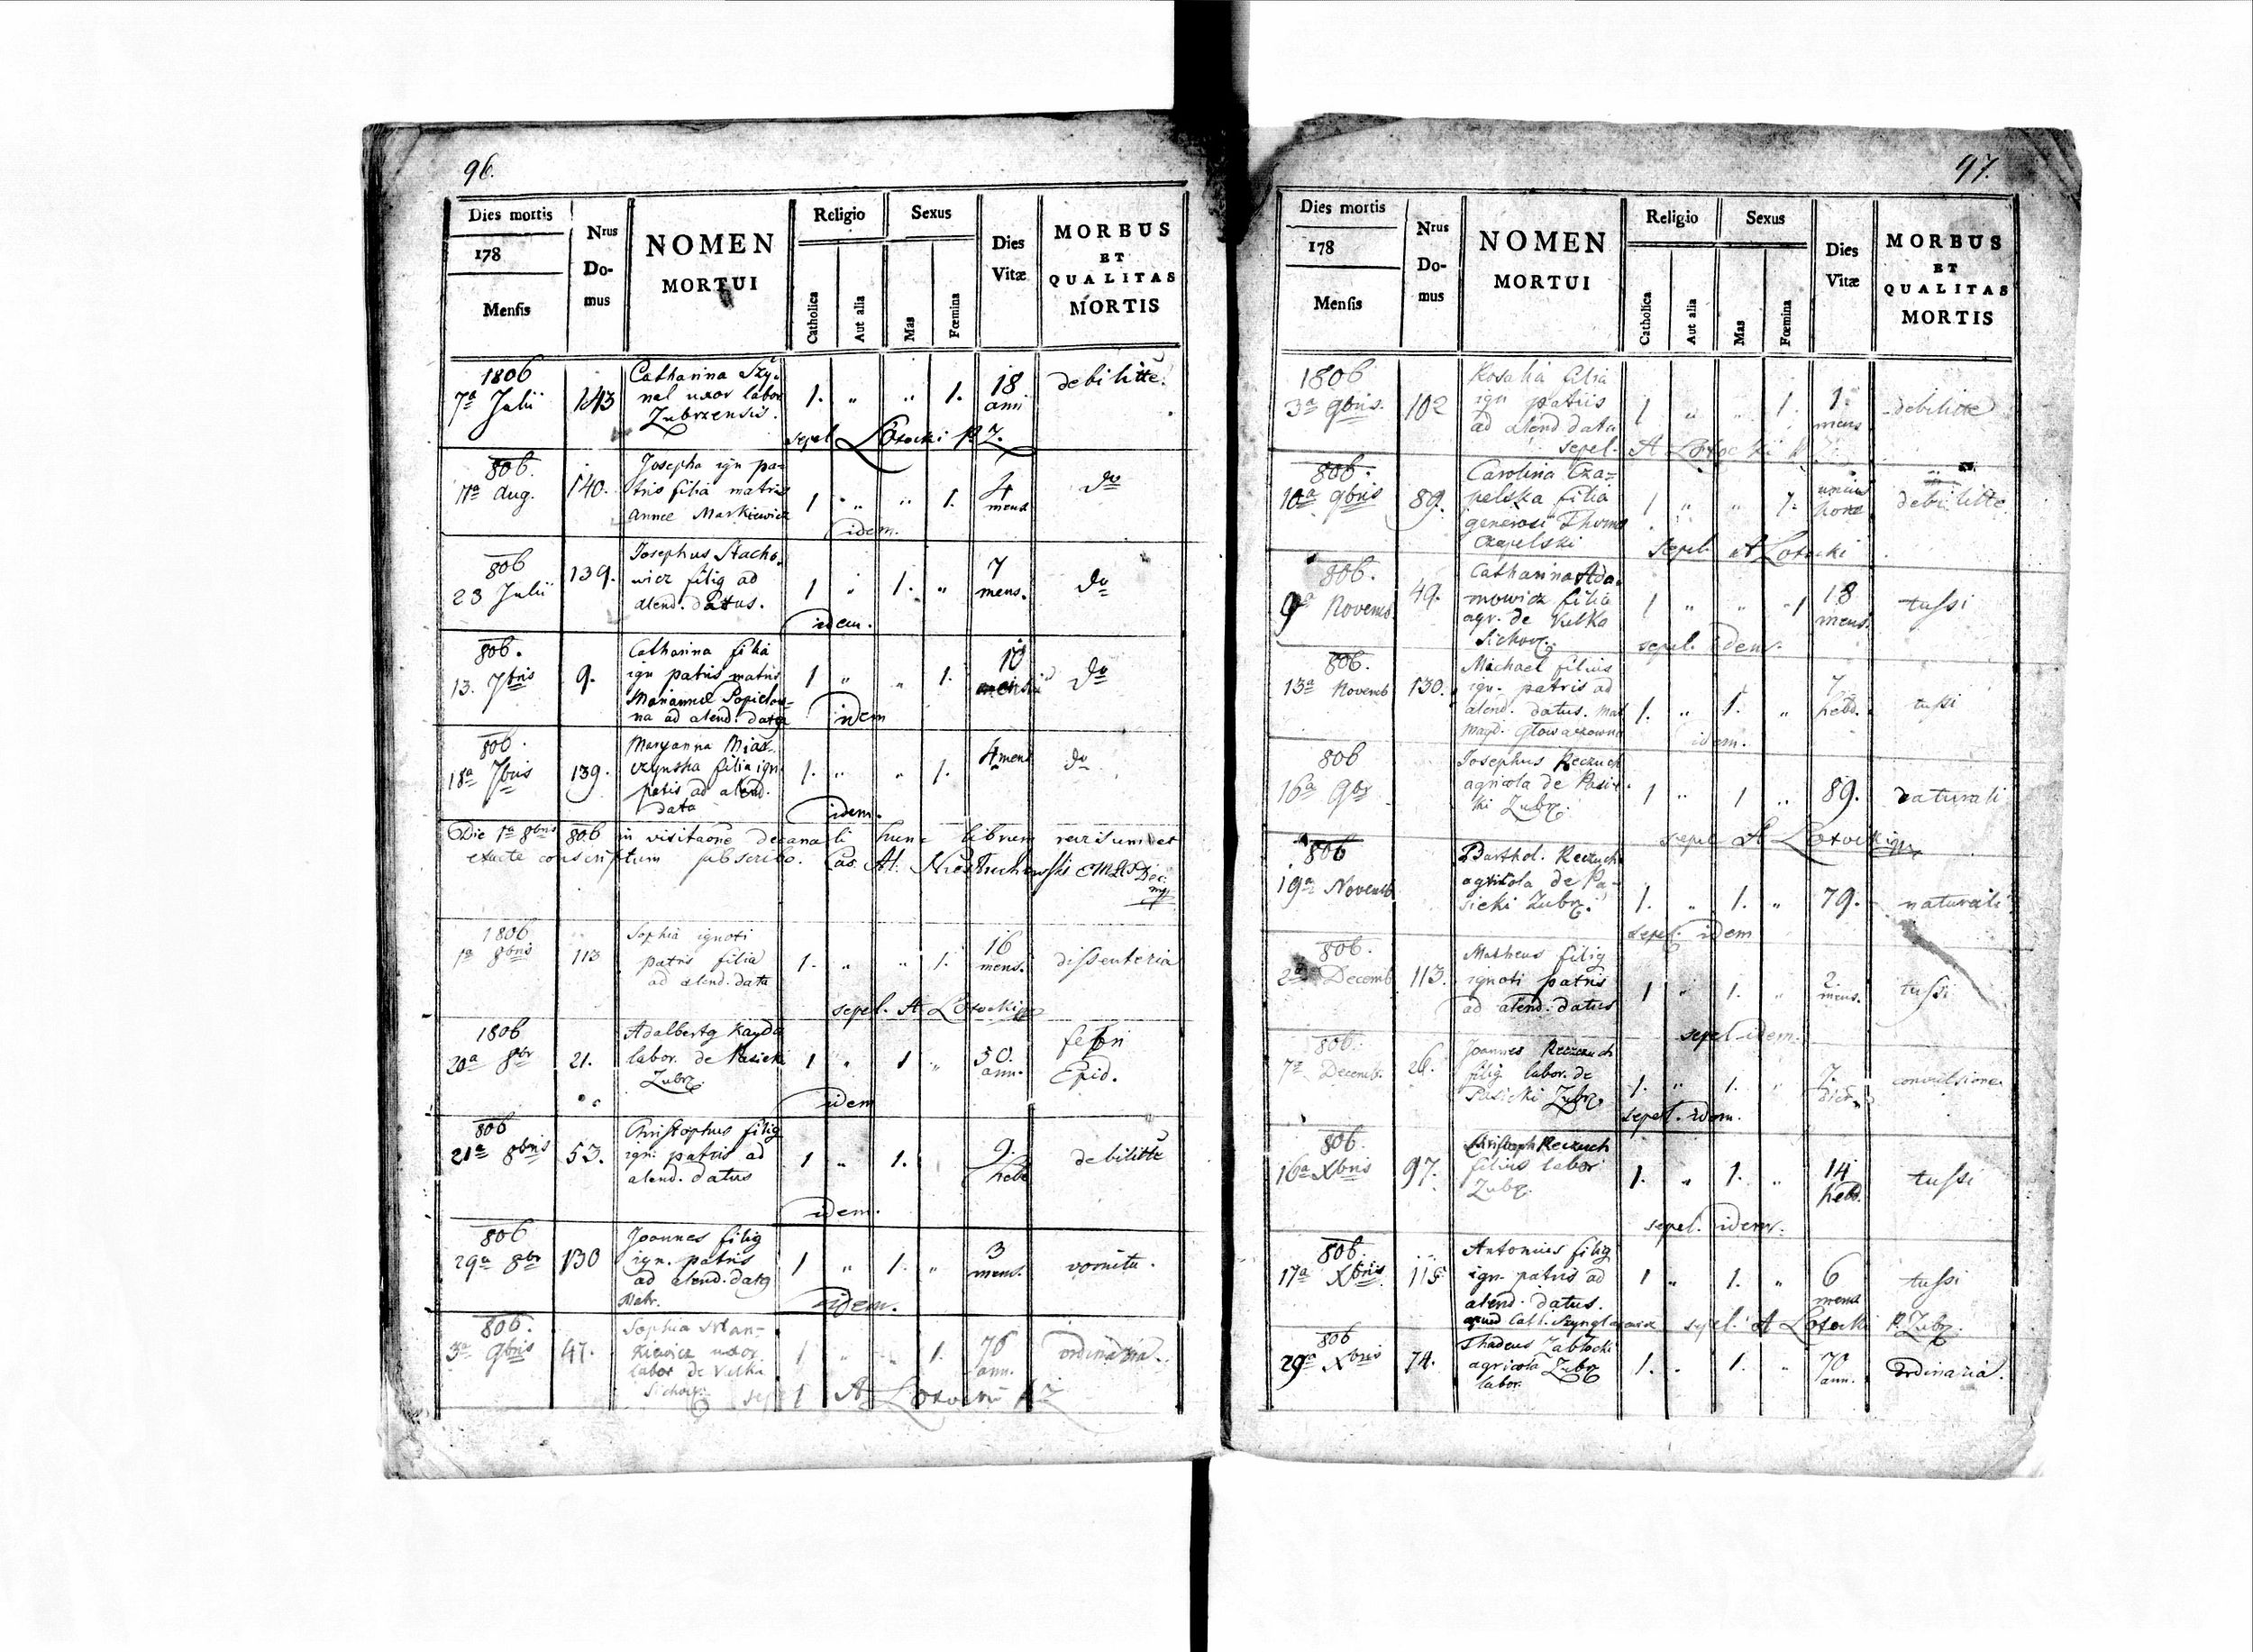 96.
Dies mortis
178
Mensis
Nrus
Do-
mus
NOMEN
MORTUI
Religio
Catholica
Aut alia
Sexus
Mas
Fœmina
Dies
Vitæ
MORBUS
ET
QUALITAS
MORTIS
1806
7a Julii 143 Catharina Szy-
nal uxor labor
Zubrzensis. 1. " " 1. 18
ani debilitte.
sepel Lotocki P. Z.
806.
11a Aug. 140. Josepha ign pa-
tris filia matris
Annæ Markiewicz 1 " " 1. 4
mens do
idem.
806
23 Julii 139. Josephus Stacho-
wicz filig ad
alend. datus. 1 " 1. " 7
mens. do
idem.
806.
13. 7bris 9. Catharina filia
ign patris matris
Mariannæ Popielow-
na ad alend. data 1 " " 1. 10 do
idem
806.
18a 7bris 139. Maryanna
filia ign
patis ad alend.
data 1. " " 1. 4 mens do
idem.
Die 1a 8bris 806 in visitaone decanali hunc librum revisum et
exacte conscriptum subscribo.
1806
1a 8bris 113 Sophia ignoti
patris filia
ad alend. data 1. " " 1. 16
mens. dissenteria
sepel. A Lotocki
1806
20a 8br 21. Adalbertg Kayda
labor. de Pasieki
Zubrz. 1 " 1 " 50.
ann. febri
Epid.
idem
806
21a 8bris 53. Christophus filig
ign: patris ad
alend. datus 1 " 1. 9.
hebd debilitte
idem.
806
29a 8br 130 Joannes filig
ign. patris
ad alend. datg 1 " 1. " 3
mens. vomitu.
idem.
806.
3a 9bris 47. Sophia Man-
kiewicz uxor
labor de Vulka
Sichow. 1 " " 1. 76
ann. ordinaria.
sepel A Lotocki P Z
97.
Dies mortis
178
Mensis
Nrus
Do-
mus
NOMEN
MORTUI
Religio
Catholica
Aut alia
Sexus
Mas
Fœmina
Dies
Vitæ
MORBUS
ET
QUALITAS
MORTIS
1806
3a 9bris. 102 Rosalia filia
ign patris
ad alend data 1 " " 1. 1.
mens debilitte
sepel. A Lotocki P Z
806.
10a 9bris 89. Carolina Cza-
pelska filia
generosi Thoma
Czapelski 1 " " 1. unius
horæ debilitte
Sepel. A Lotocki
806.
9a Novemb 49. Catharina Ada-
mowicz filia
agr. de Vulka
Sichow. 1 " " 1 18
mens. tussi
sepel. idem.
806.
13a Novemb 130. Michael filius
ign. patris ad
alend. datus. mat
magd. Glowaczowna 1. " 1. " 7
hebd. tussi
idem.
806
16a 9br Josephus Reczuch
agricola de Pasie-
ki Zubrz. 1 " 1 " 89. naturali
sepel A Lotocki
806
19a Novemb Barthol. Reczuch
agricola de Pa-
sieki Zubrz. 1. " 1. " 79. naturali
sepel. idem
806.
2a Decemb 113. Matheus filig
ignoti patris
ad alend. datus 1 " 1. " 2.
mens. tussi
sepel idem.
806.
7a Decemb. 26. Joannes Reczuch
filig labor. de
Pasieki Zubrz. 1. " 1. " 7.
dier. convulsione
sepel. idem.
806.
16a Xbris 97. Christoph Reczuch
filius labor
Zubrz. 1. " 1. " 14
hebd. tussi
sepel. idem.
806.
17a Xbris. 115 Antonius filig
ign. patris ad
alend. datus.
1 " 1. " 6
mens tussi
sepel. A Lotocki P. Zubrz.
806
29a Xbris 74. Thadeus Zablocki
agricola Zubrz
labor. 1. " 1. " 70
ann. ordinaria.